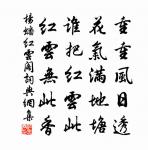 重重風日透
花氣滿地塘
誰把紅雲此
紅雲無此香
楊蟠紅雲閣詞典網集